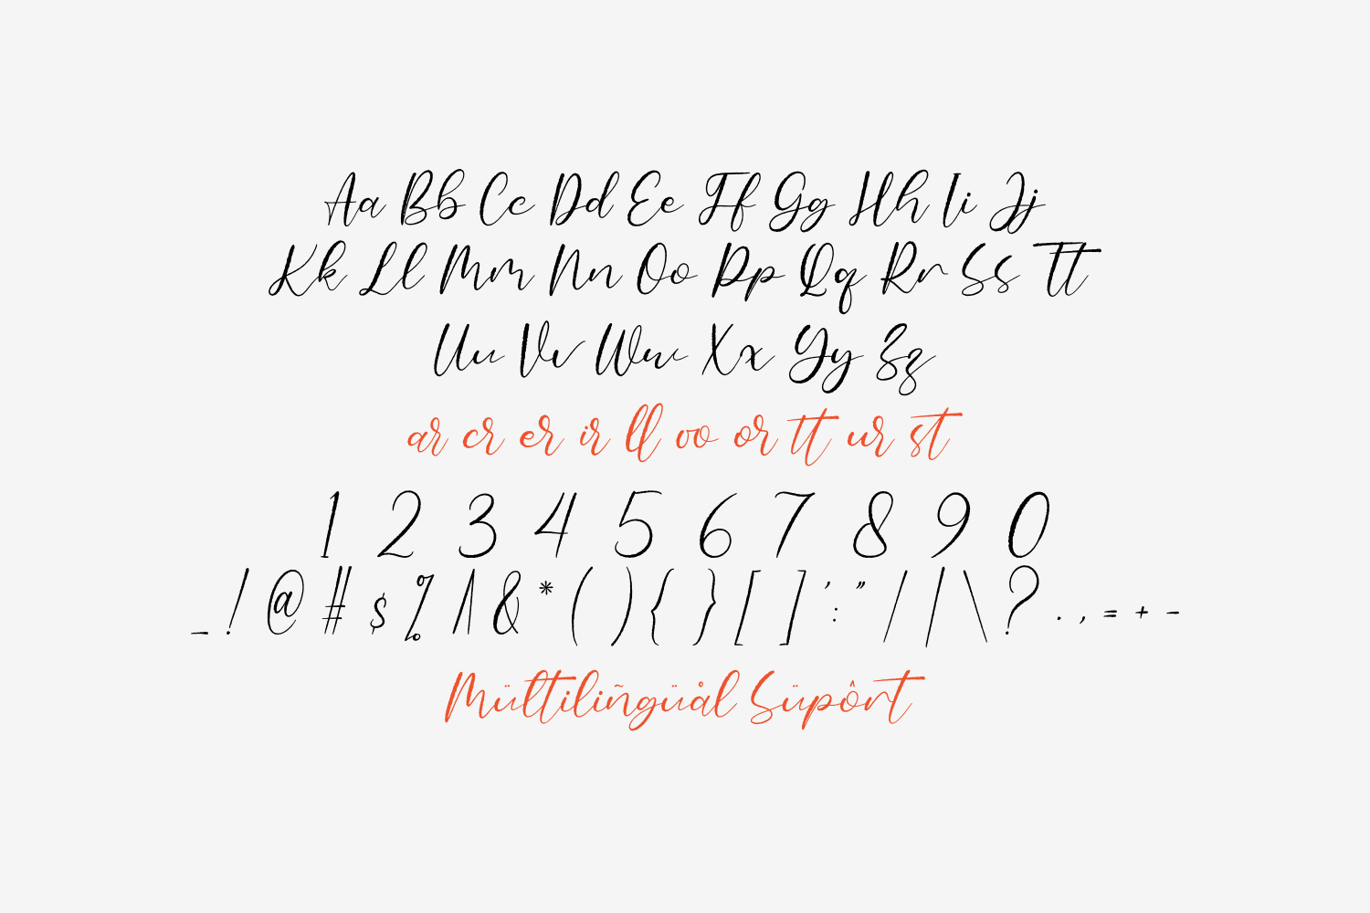 Aa Bb Cc Dd Ee Ff Gg Hh Ii Jj
Kk Ll Mm Nn Oo Pp Qq Rr Ss Tt
Uu Vv Ww Xx Yy Zz
ar cr er ir ll oo or tt ur st
1 2 3 4 5 6 7 8 9 0
_ ! @ # $ % ^ & * ( ) { } [ ] ' : " / | \ ? . , = + -
Mültiliñgüål Süpôrt